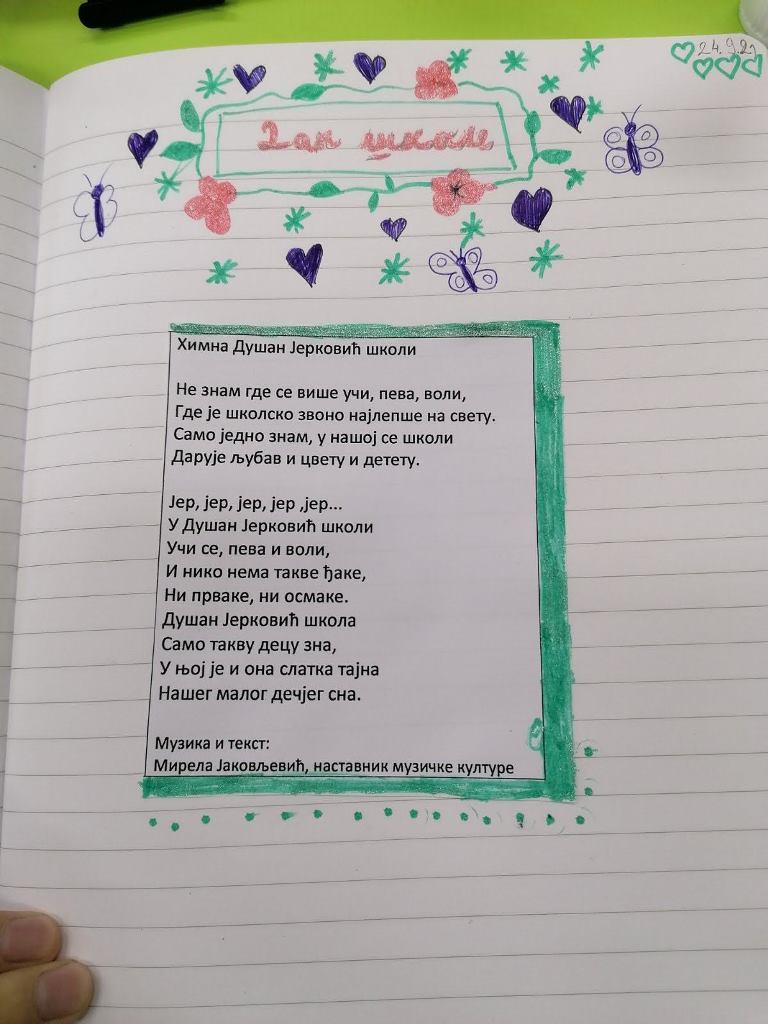 24.9.21
Дан школе
Химна Душан Јерковић школи
Не знам где се више учи, пева, воли,
Где је школско звоно најлепше на свету.
Само једно знам, у нашој се школи
Дарује љубав и цвету и детету.
Јер, јер, јер, јер ,јер...
У Душан Јерковић школи
Учи се, пева и воли,
И нико нема такве ђаке,
Ни прваке, ни осмаке.
Душан Јерковић школа
Само такву децу зна,
У њој је и она слатка тајна
Нашег малог дечјег сна.
Музика и текст:
Мирела Јаковљевић, наставник музичке културе